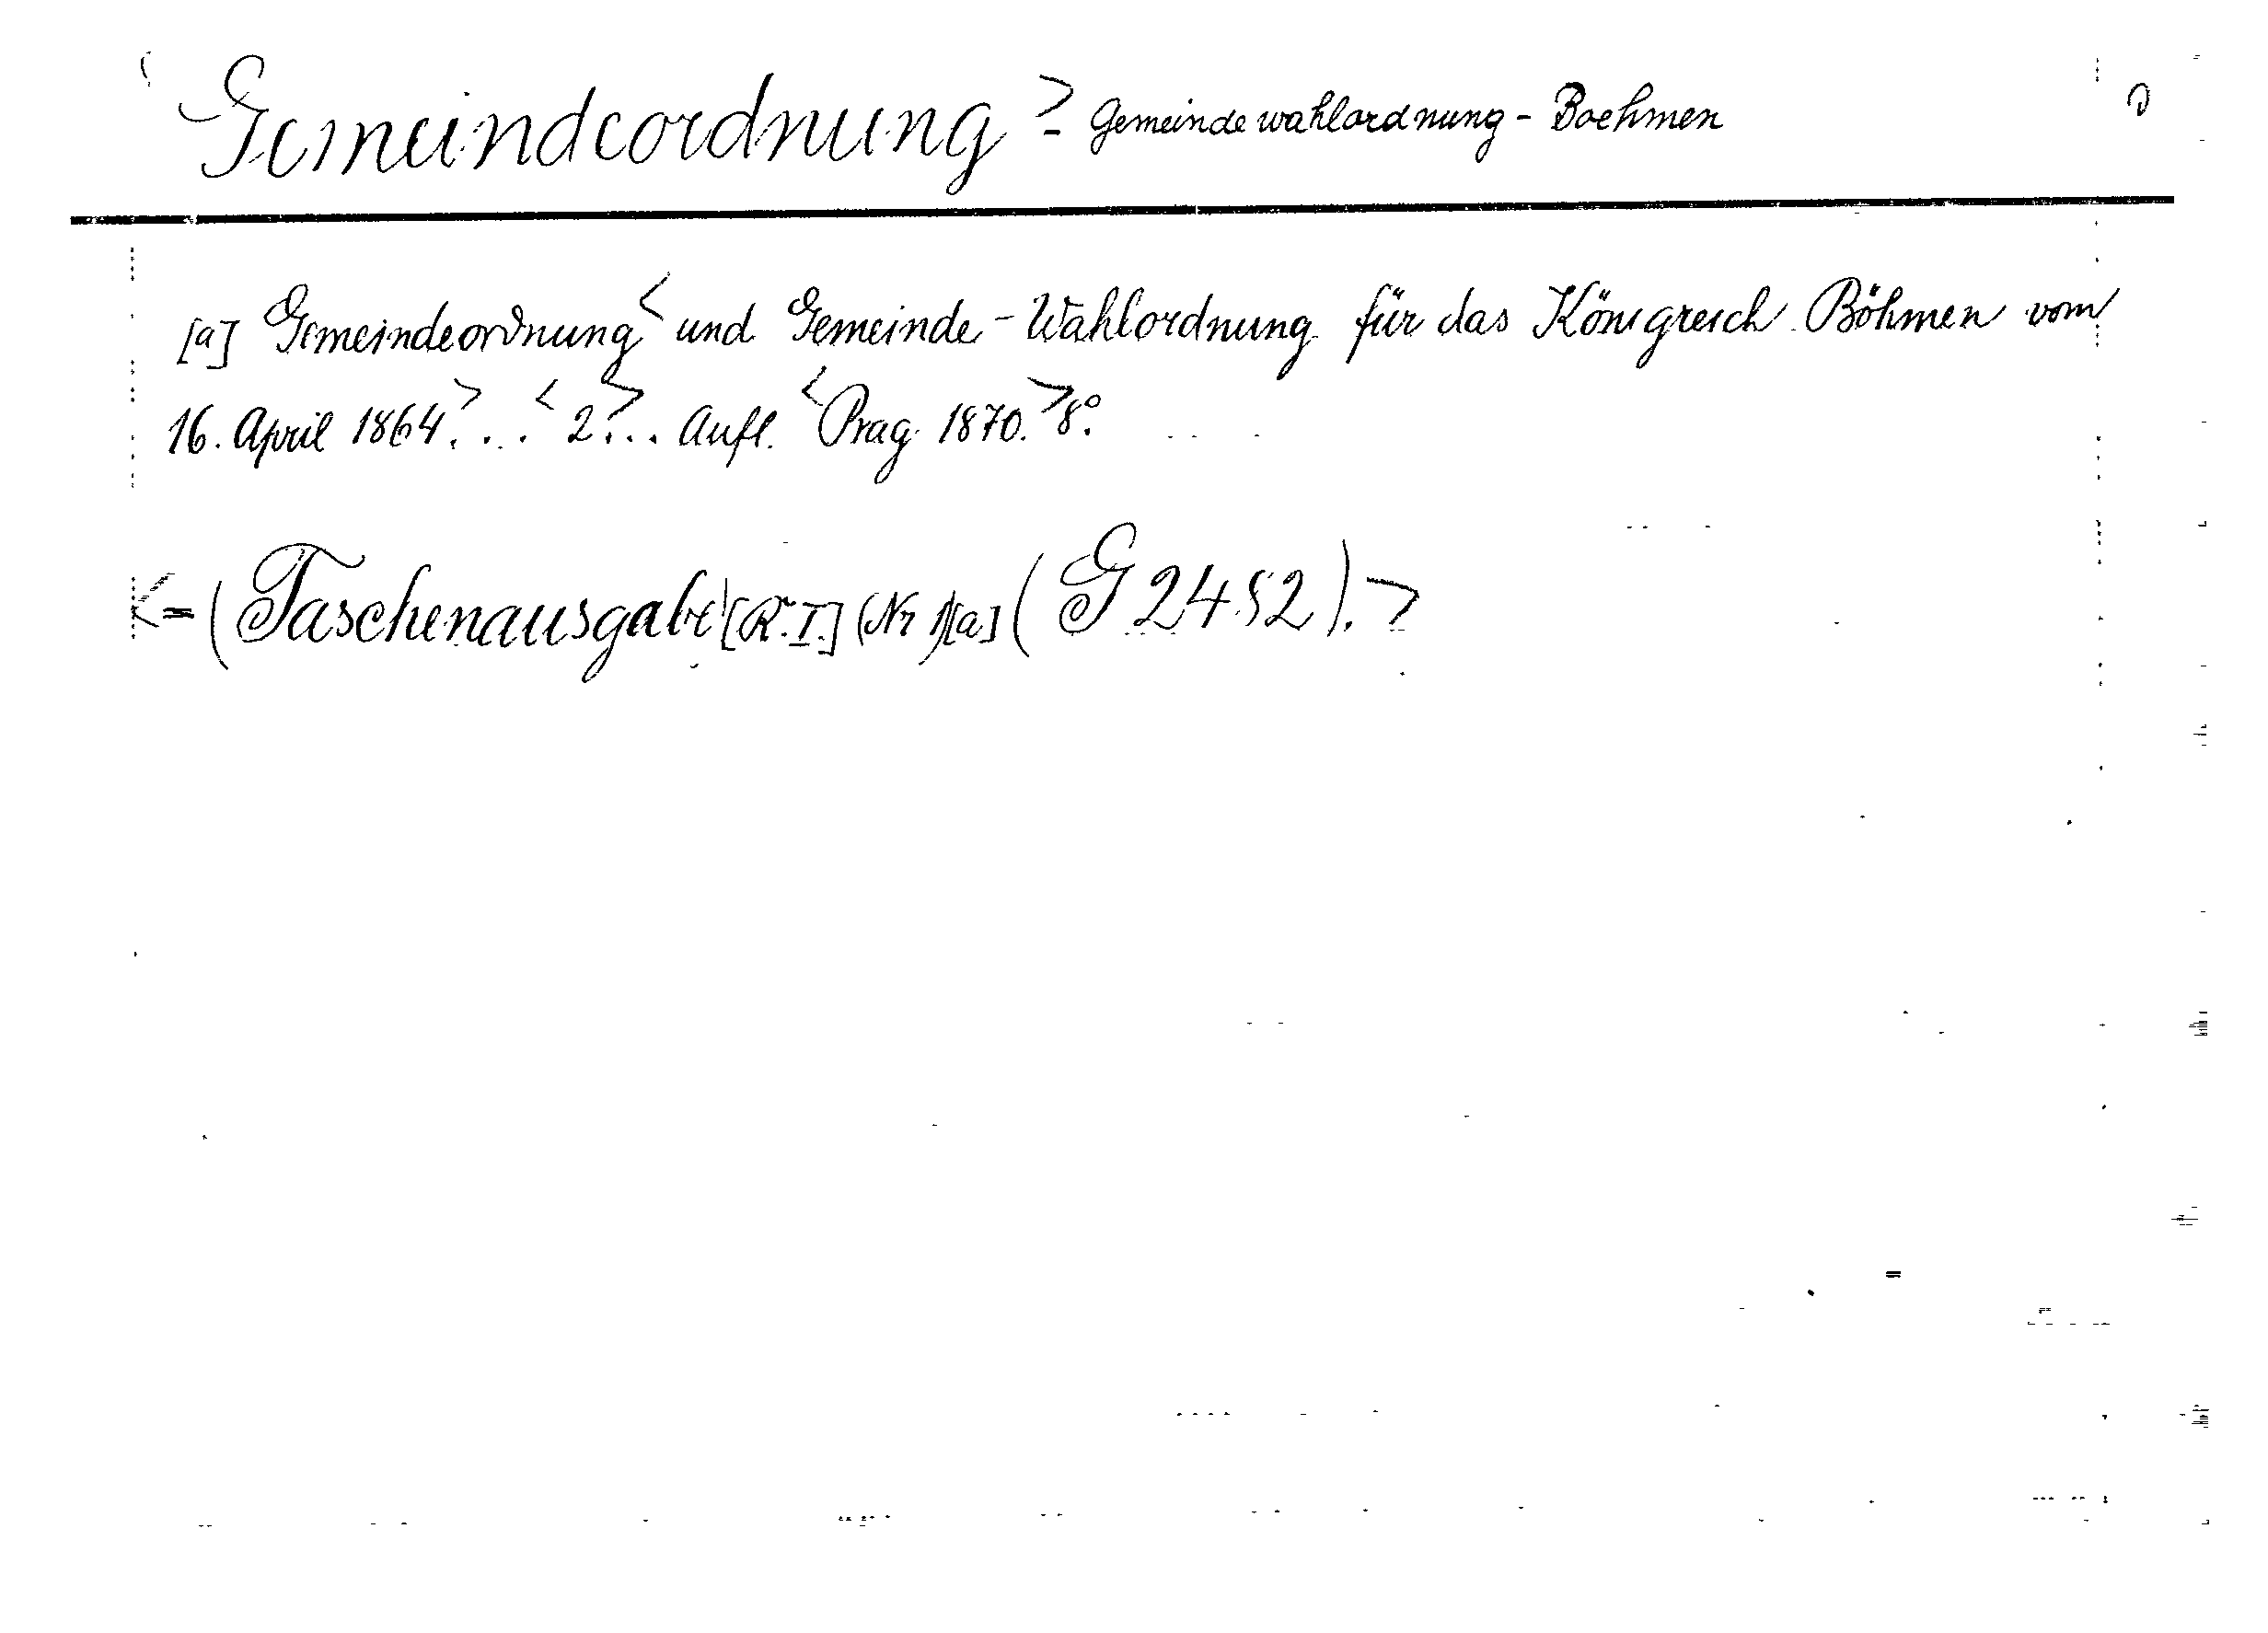 Gemeindeordnung > - Gemeindewahlordnung - Boehmen
[a] Gemeindeordnung < und Gemeinde-Wahlordnung für das Königreich Böhmen vom
16. April 1864 > ... < 2 > ... Aufl. < Prag 1870. > 8°.
< = (Taschenausgabe) [R. I.] (Nr 1) [a] (G 2452). >